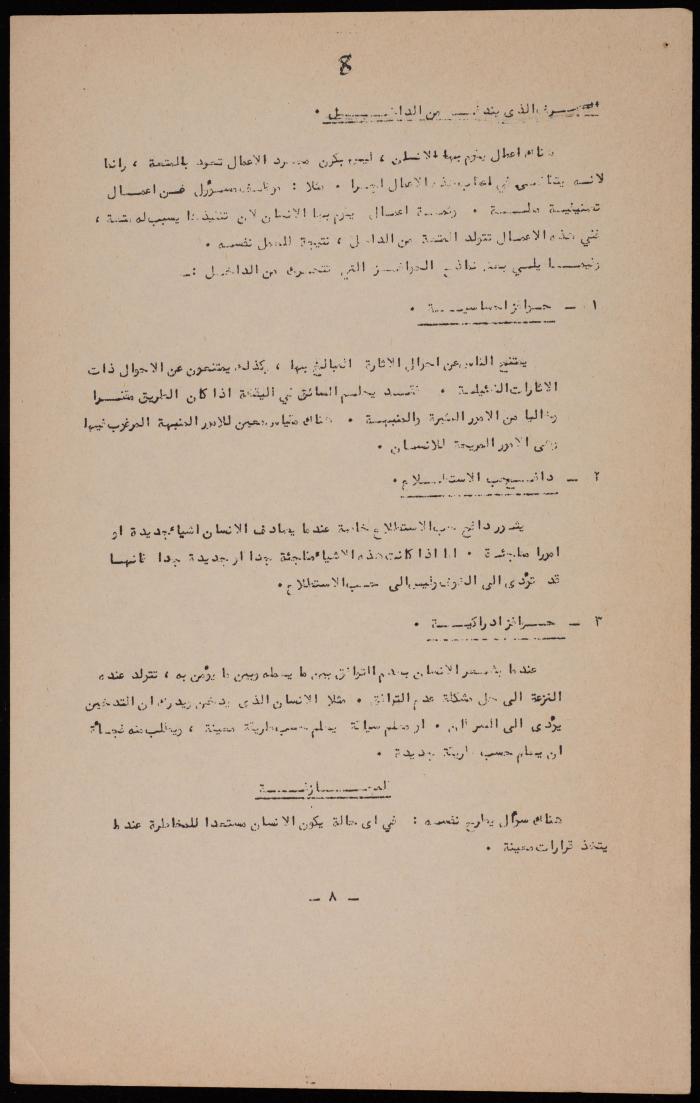 8
الذي يندفع من الداخل •
هناك اعمال يقوم بها الانسان ، ليس يكون مجرد الاعمال تعود بالمتعة ، وانما
لانه يتقاضى في اعقاب هذه الاعمال اجرا • مثلا : موظف مسؤول عن اعمال
تصنيفية • وثمة اعمال يقوم بها الانسان لان تنفيذها يسبب له متعة ،
ففي هذه الاعمال تتولد المتعة من الداخل ، نتيجة للعمل نفسه •
وفيما يلي بعض نماذج الحوافز التي تتحرك من الداخل :ـ
١ - حوافز احساسية •
يمتنع الناس عن احوال الاثارة المبالغ بها ، وكذلك يمتنعون عن الاحوال ذات
الاثارات الضئيلة • فقد السائق في اليقظة اذا كان الطريق مقفرا
وخاليا من الامور المثيرة والمنبهة • هناك مقياس معين للامور المنبهة المرغوب فيها
وهي الامور المريحة للانسان •
٢ - دافع حب الاستطلاع •
يثور دافع حب الاستطلاع خاصة عندما يصادف الانسان اشياء جديدة او
امورا مفاجئة • اما اذا كانت هذه الاشياء مفاجئة جدا او جديدة جدا فانها
قد تؤدى الى الخوف وليس الى حب الاستطلاع •
٣ - حوافز ادراكية •
عندما يشعر الانسان بعدم التوافق بين ما يعمله وبين ما يؤمن به ، تتولد عنده
النزعة الى حل مشكلة عدم التوافق • مثلا الانسان الذى يدخن ويدرك ان التدخين
يؤدى الى السرطان • او معلم سياقة يعلم حسب طريقة معينة ، ويطلب منه فجأة
ان يعلم حسب طريقة جديدة •
المجازفة
هناك سؤال يطرح نفسه : في اى حالة يكون الانسان مستعدا للمخاطرة عندما
يتخذ قرارات معينة •
- ٨ -